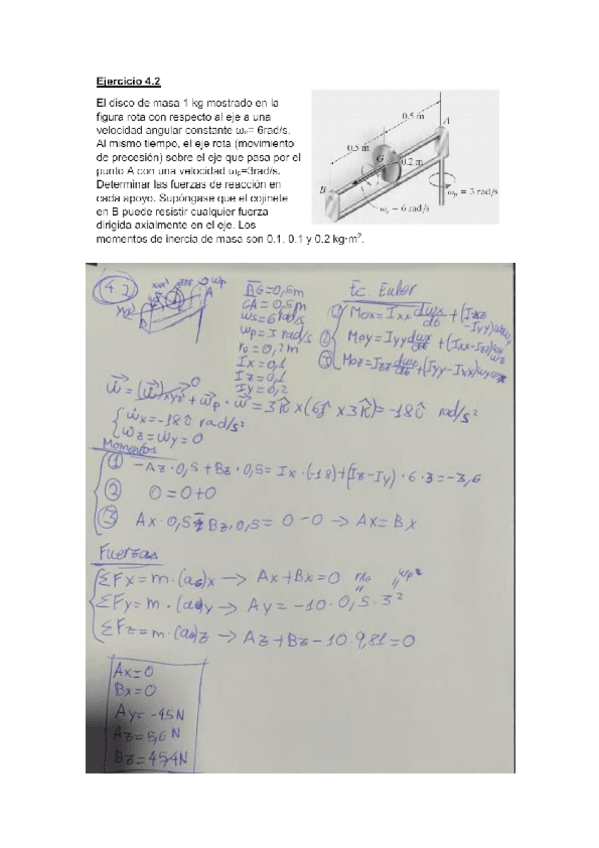 Ejercicio 4.2
El disco de masa 1 kg mostrado en la
figura rota con respecto al eje a una
velocidad angular constante ωs= 6rad/s.
Al mismo tiempo, el eje rota (movimiento
de precesión) sobre el eje que pasa por el
punto A con una velocidad ωp=3rad/s.
Determinar las fuerzas de reacción en
cada apoyo. Supóngase que el cojinete
en B puede resistir cualquier fuerza
dirigida axialmente en el eje. Los
momentos de inercia de masa son 0.1, 0.1 y 0.2 kg·m².
0.5 m
A
0.5 m
G
0.2 m
B
ωp = 3 rad/s
ωs = 6 rad/s
4.2
wp
A
BG=0,5m
GA=0,5m
ws=6 rad/s
wp=3 rad/s
r0=0,2m
Ix=0,1
Iz=0,1
Iy=0,2
Ec. Euler
① Mox=Ixx dwx/dt +(Izz-Iyy)wywz
② Moy=Iyy dwx/dt +(Ixx-Izz)wxwz
③ Moz=Izz dwz/dt +(Iyy-Ixx)wywx
ẇ=(ẇ)xyz+wp·w=3k̂×(6ĵ×3k̂)=-18î rad/s²
ẇx=-18î rad/s²
ẇz=ẇy=0
Momentos
① -Az·0,5+Bz·0,5=Ix·(-18)+(Iz-Iy)·6·3=-3,6
② 0=0+0
③ Ax·0,5-Bz·0,5=0-0→Ax=Bx
Fuerzas
ΣFx=m·(aG)x→Ax+Bx=0
rAG wp²
ΣFy=m·(aG)y→Ay=-10·0,5·3²
ΣFz=m·(aG)z→Az+Bz-10·9,81=0
Ax=0
Bx=0
Ay=-45N
Az=5,6N
Bz=45,4N